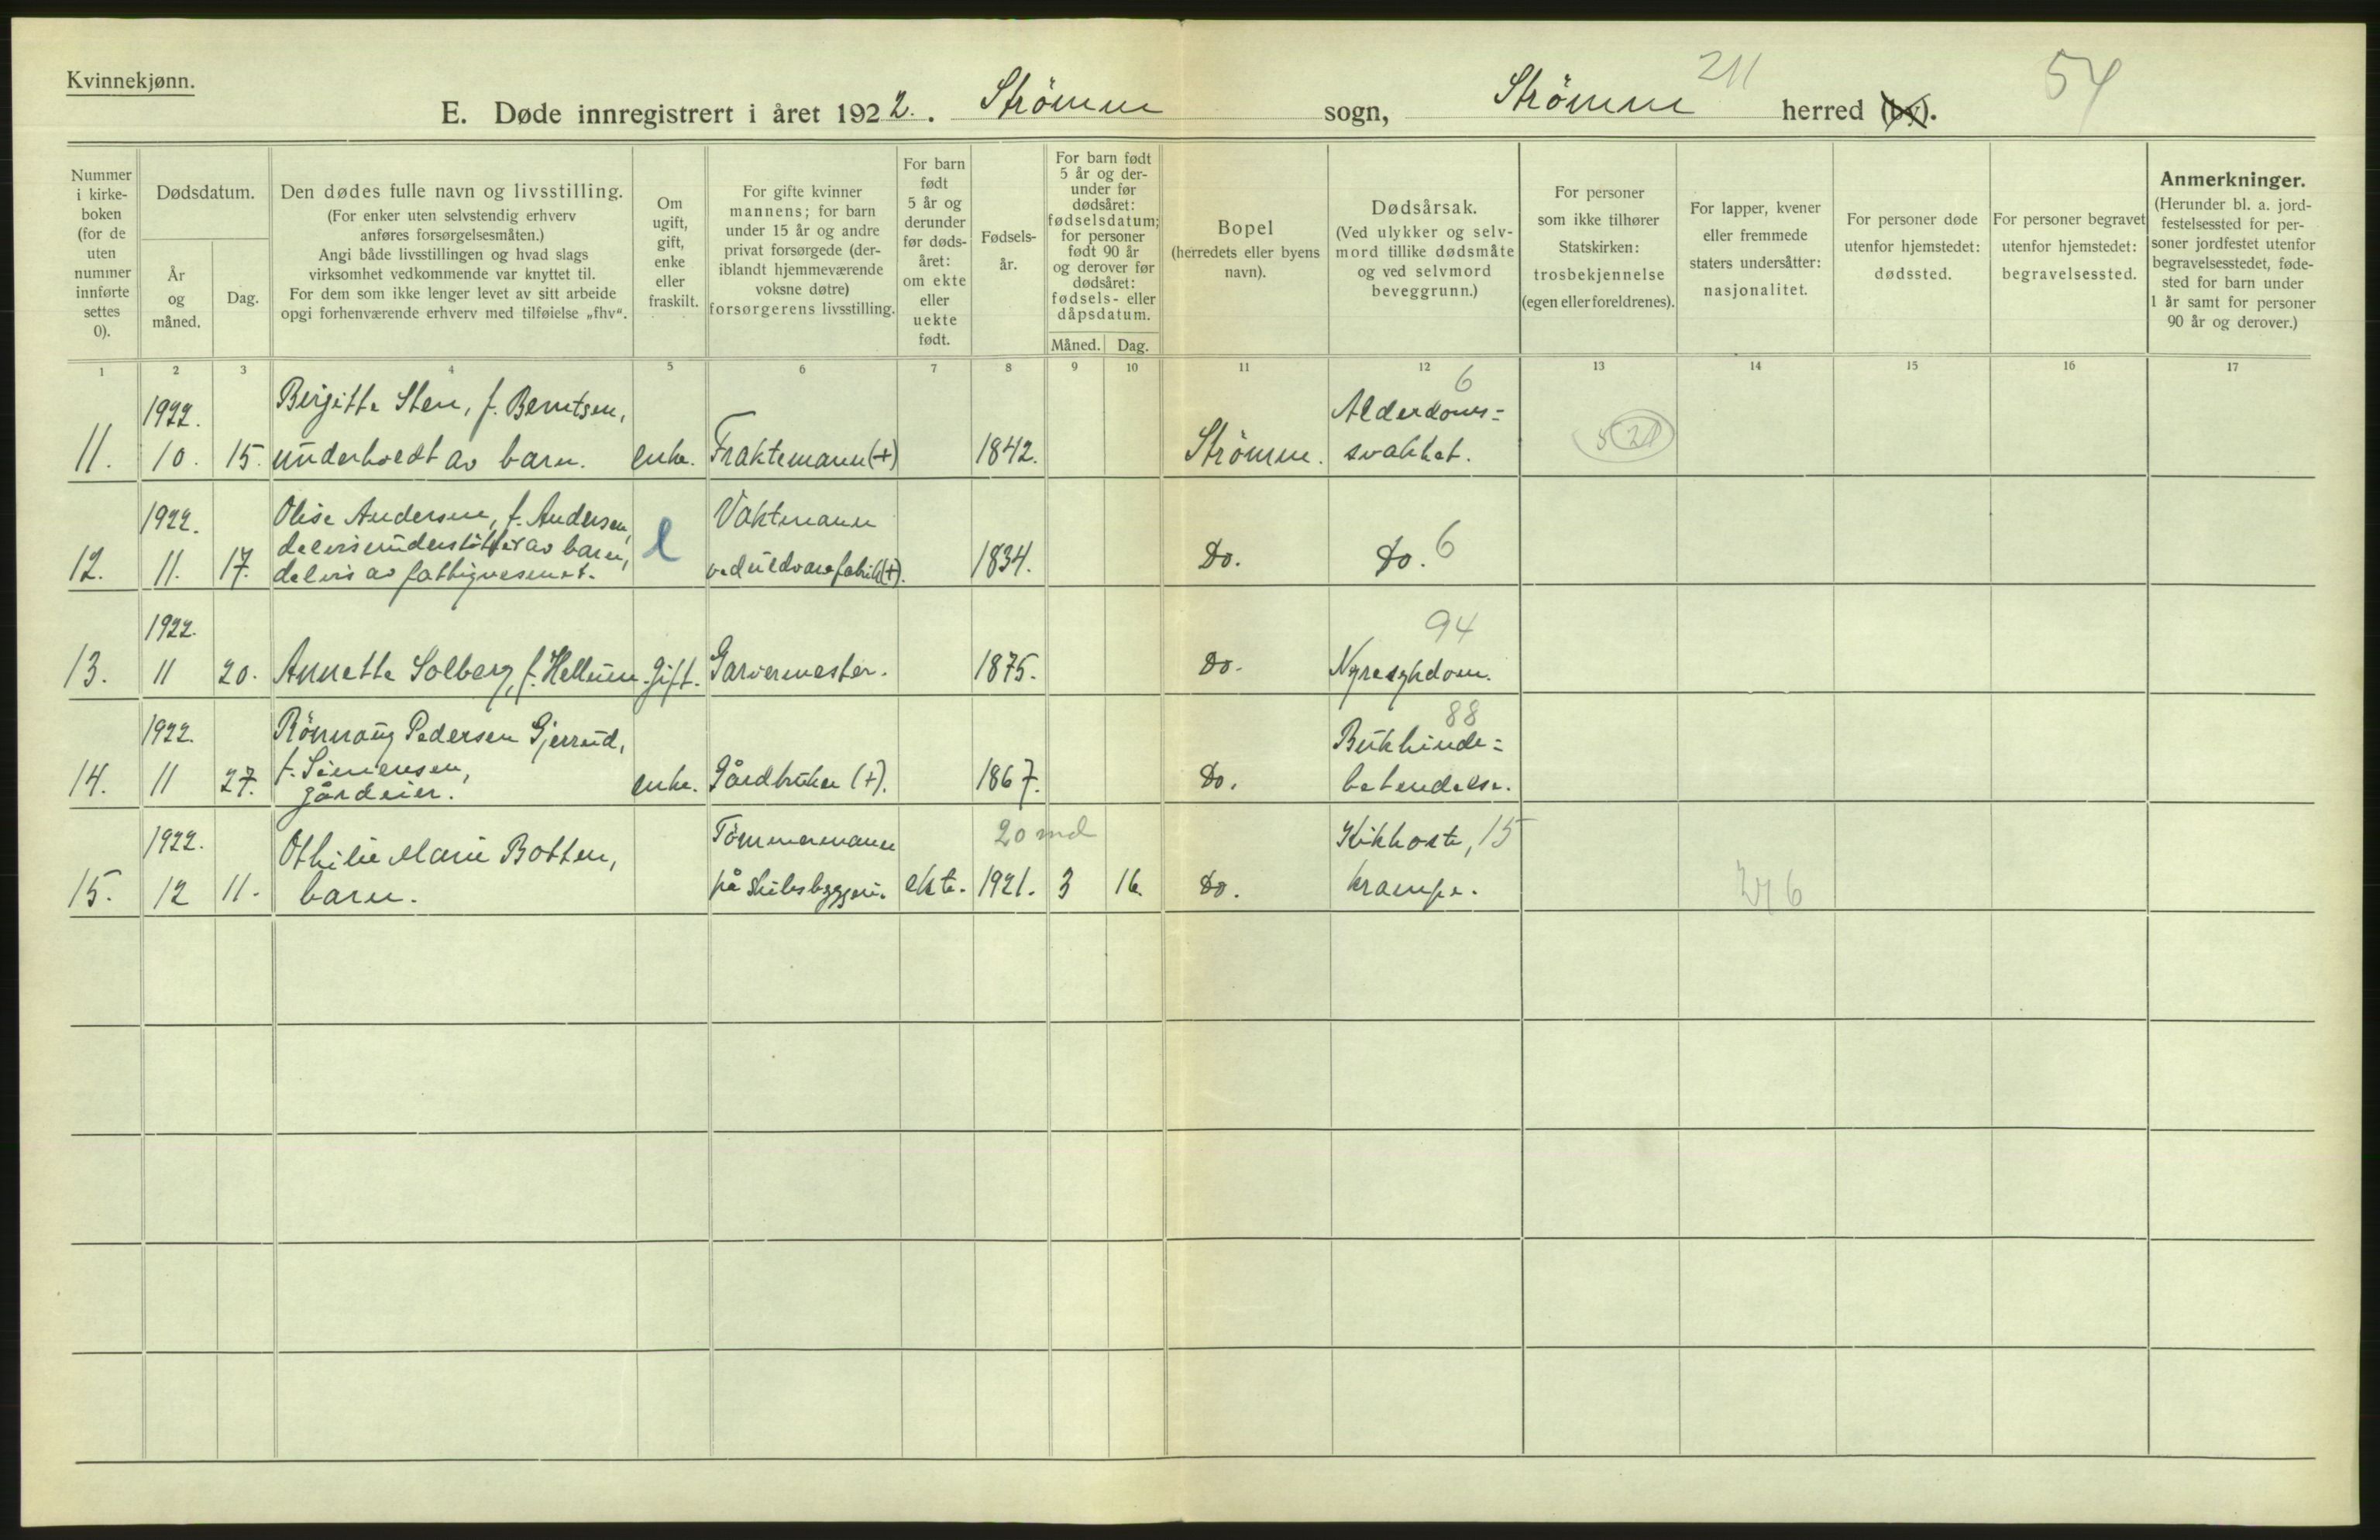 Kvinnekjønn.
E. Døde innregistrert i året 1922. Strömm sogn, Strömm herred (by).
211
54
Nummer i kirke-boken (for de uten nummer innførte settes 0).
Dødsdatum.
År og måned.
Dag.
Den dødes fulle navn og livsstilling.
(For enker uten selvstendig erhverv
anføres forsørgelsesmåten.)
Angi både livsstillingen og hvad slags
virksomhet vedkommende var knyttet til.
For dem som ikke lenger levet av sitt arbeide
opgi forhenværende erhverv med tilføielse „fhv“.
Om
ugift,
gift,
enke
eller
fraskilt.
For gifte kvinner
mannens; for barn
under 15 år og andre
privat forsørgede (der-
iblandt hjemmeværende
voksne døtre)
forsørgerens livsstilling.
For barn
født
5 år og
derunder
før døds-
året:
om ekte
eller
uekte
født.
Fødsels-
år.
For barn født
5 år og der-
under før
dødsåret:
fødselsdatum;
for personer
født 90 år
og derover før
dødsåret:
fødsels- eller
dåpsdatum.
Måned. Dag.
Bopel
(herredets eller byens
navn).
Dødsårsak.
(Ved ulykker og selv-
mord tillike dødsmåte
og ved selvmord
beveggrunn.)
For personer
som ikke tilhører
Statskirken:
trosbekjennelse
(egen eller foreldrenes).
For lapper, kvener
eller fremmede
staters undersåtter:
nasjonalitet.
For personer døde
utenfor hjemstedet:
dødssted.
For personer begravet
utenfor hjemstedet:
begravelsessted.
Anmerkninger.
(Herunder bl. a. jord-
festelsessted for per-
soner jordfestet utenfor
begravelsesstedet, føde-
sted for barn under
1 år samt for personer
90 år og derover.)
1 2 3 4 5 6 7 8 9 10 11 12 13 14 15 16 17
1922. Birgitte Sten, f. Berntsen, Alderdoms= 6
11. 10. 15. underholdt av barn. enke. Fraktemann (+) 1842. Strömm. svakhet. 5 21
1922. Olise Andersen, f. Andersen, Vaktmann
delvis understöttet av barn, e
12. 11. 17. delvis av fattigvesenet. ved uldvarefabrik (+). 1834. Do. Do. 6
1922. 94
13. 11 20. Annette Solberg, f. Hellum. gift. Garvermester. 1875. Do. Nyresykdom.
1922. Rönnaug Pedersen Gjerrud, 88 Bukhinde=
f. Simensen,
14. 11 27. gårdeier. enke. Gårdbruker (+). 1867. Do. betendelse.
1922. Othilie Marie Botten, Tömmermann 20 md Kikhoste, 15
15. 12 11. barn. på skibsbyggeri. ekte. 1921. 3 16. Do. krampe.